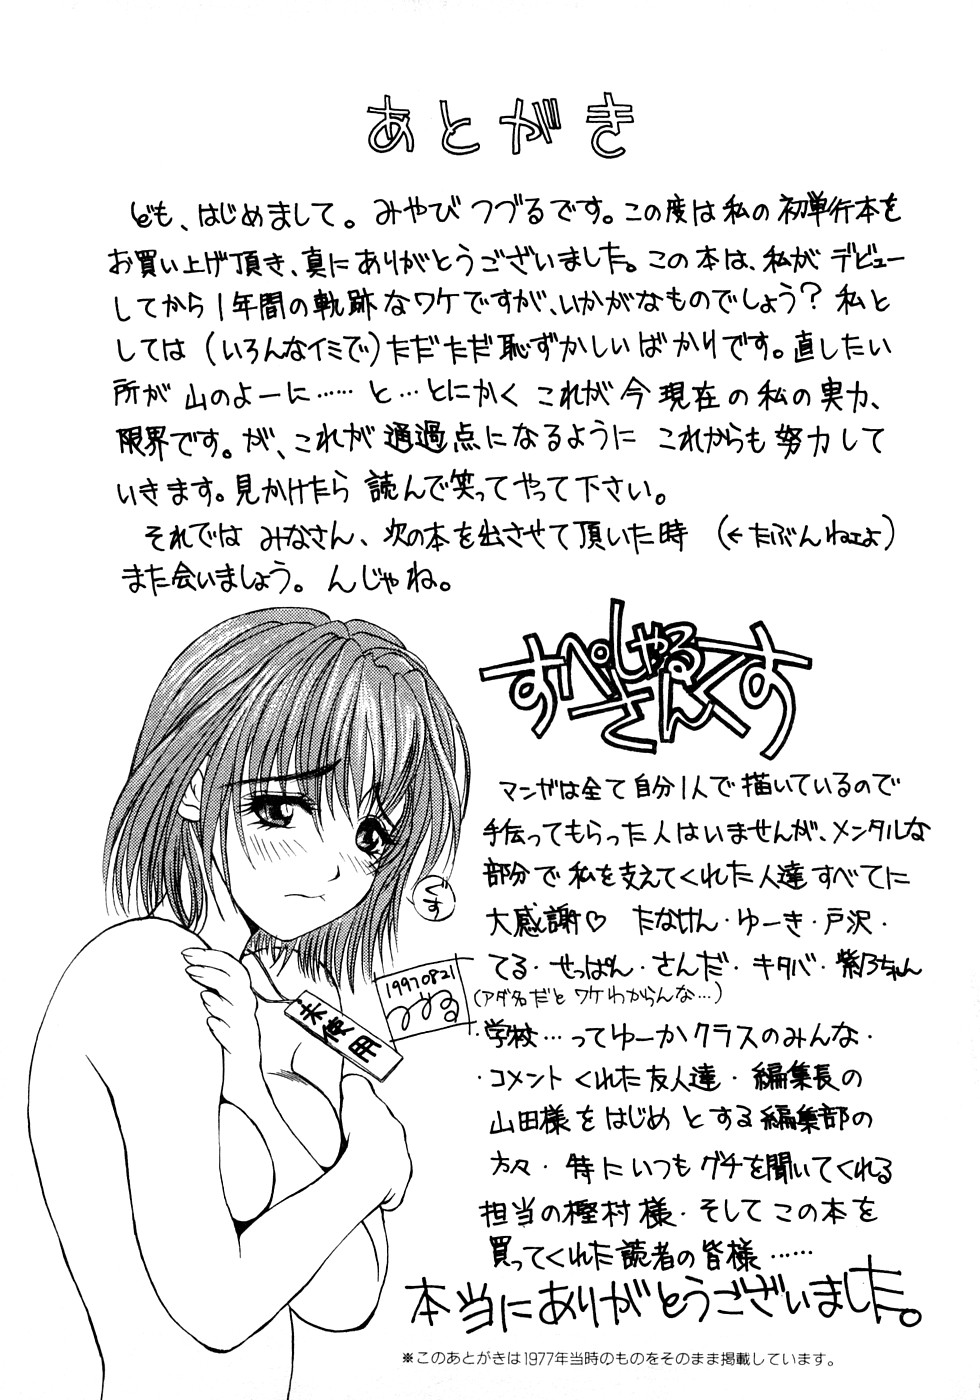 あとがき
ども、はじめまして。みやびつづるです。この度は私の初単行本を
お買い上げ頂き、真にありがとうございました。この本は、私がデビュー
してから1年間の軌跡なワケですが、いかがなものでしょう？私と
しては（いろんなイミで）ただただ恥ずかしいばかりです。直したい
所が山のよーに……と…とにかくこれが今現在の私の実力、
限界です。が、これが通過点になるようにこれからも努力して
いきます。見かけたら読んで笑ってやって下さい。
それではみなさん、次の本を出させて頂いた時（←たぶんねェよ）
また会いましょう。んじゃね。
すぺしゃる
さんくす
マンガは全て自分1人で描いているので
手伝ってもらった人はいませんが、メンタルな
部分で私を支えてくれた人達すべてに
大感謝♡ たなけん・ゆーき・戸沢・
てる・せっぱん・さんだ・キタバ・紫乃ちゃん
(アダ名だとワケわからんな…)
・学校…ってゆーかクラスのみんな・
・コメントくれた友人達・編集長の
山田様をはじめとする編集部の
方々・特にいつもグチを聞いてくれる
担当の樫村様・そしてこの本を
買ってくれた読者の皆様……
本当にありがとうございました。
ぐす
19970821
つづる
未使用
※このあとがきは1977年当時のものをそのまま掲載しています。